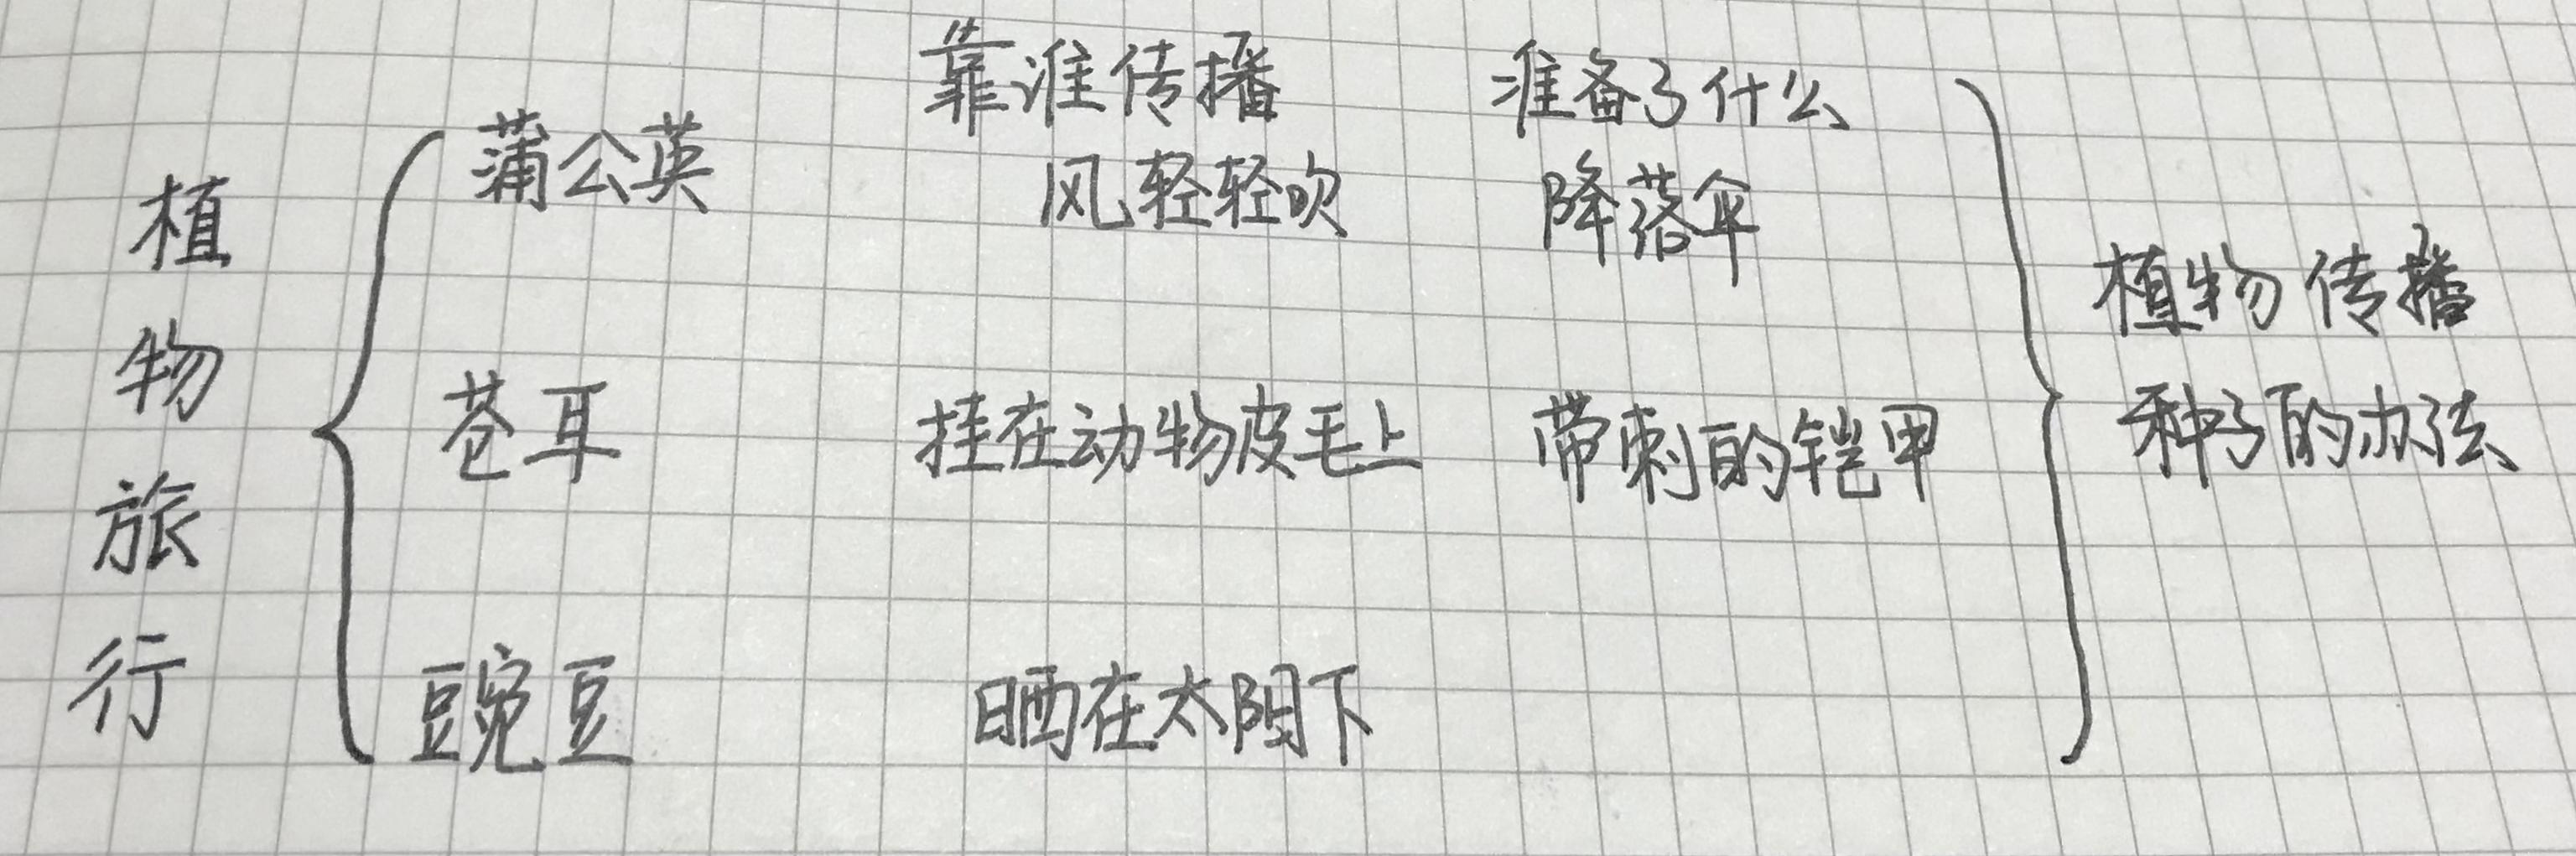 植物旅行
靠谁传播 准备了什么
蒲公英 风轻轻吹 降落伞
苍耳 挂在动物皮毛上 带刺的铠甲
豌豆 晒在太阳下
植物传播
种子的办法